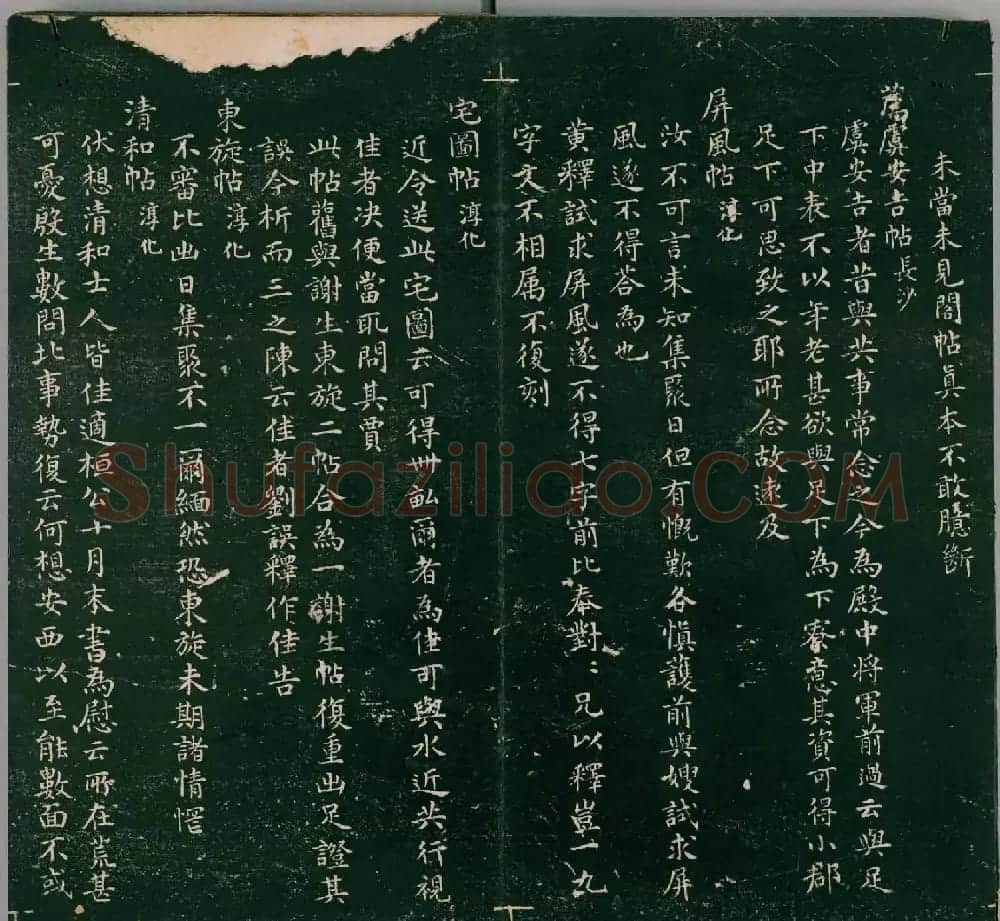 未當未見閣帖眞本不敢臆斷
薦虞安吉帖長沙
虞安吉者昔與共事常念之今為殿中将軍前過云與足
下中表不以年老甚欲與足下為下寮意其資可得小郡
足下可思致之耶所念故遠及
屏風帖淳化
汝不可言未知集聚日但有慨歎各慎護前與嫂試求屏
風遂不得荅為也
黄釋試求屏風遂不得七字前比奉對〻兄以釋豈一九
字文不相属不復刻
宅圖帖淳化
近令送此宅圖云可得卅畝爾者為佳可與水近共行視
佳者决便當取問其賈
此帖舊與謝生東旋二帖合為一謝生帖復重出足證其
誤今析而三之陳云佳者劉誤釋作佳告
東旋帖淳化
不審比出日集聚不一爾緬然恐東旋未期諸情罔
清和帖淳化
伏想清和士人皆佳適桓公十月末書為慰云所在荒甚
可憂殷生數問北事勢復云何想安西以至能數面不或
Shufaziliao.COM